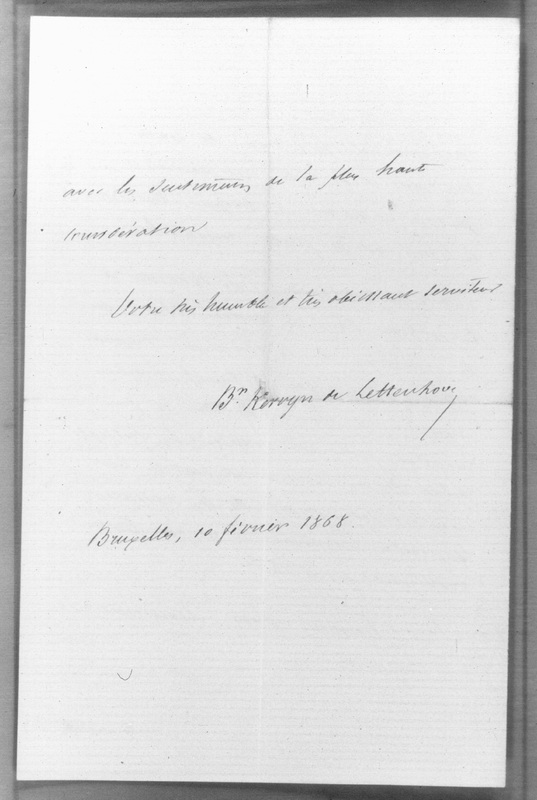 avec les sentiments de la plus haute
considération
Votre très humble et très obéissant serviteur
Bn Kervyn de Lettenhove
Bruxelles, 10 février 1868.